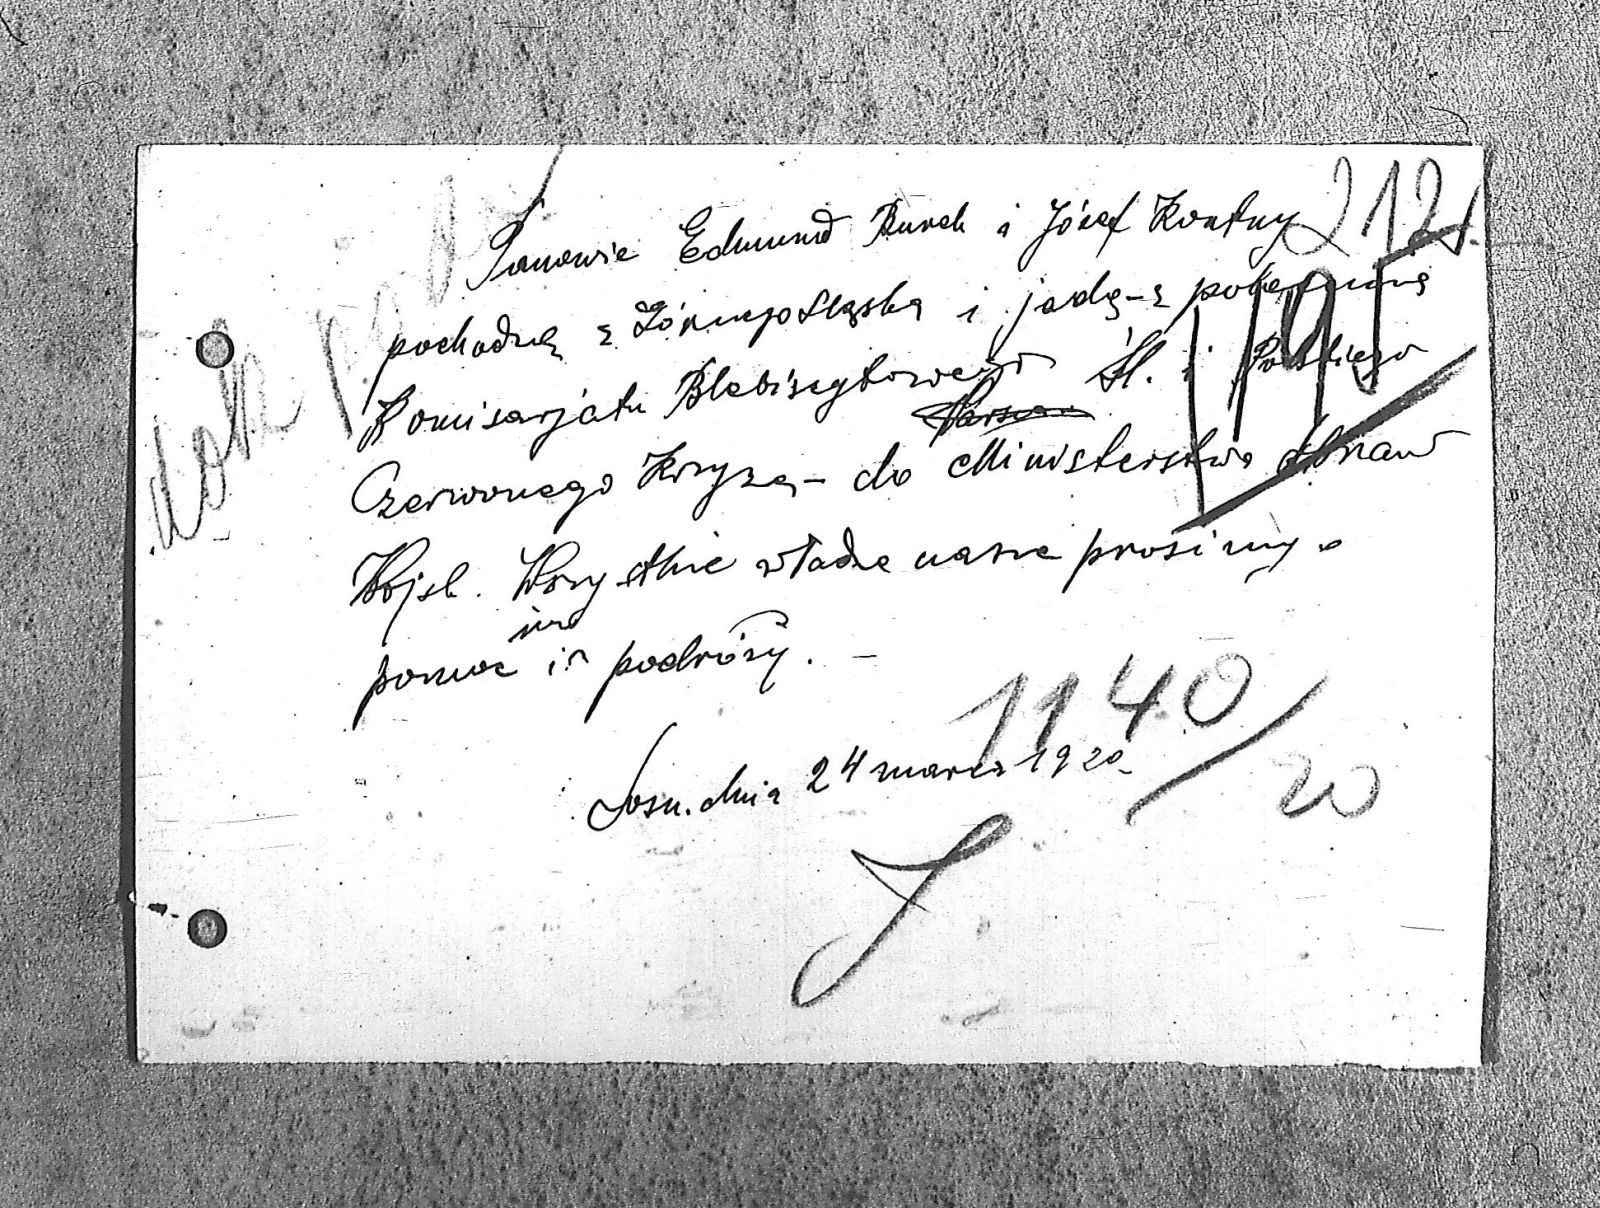 212.
Panowie Edmund Burek i Józef Kontny
pochodzą z Górnego Śląska i jadą - z polecenia
Komisarjatu Plebiscytowego Śl. i Polskiego
Czerwonego Krzyża - do Ministerstwa Spraw
Wojsk. Wszystkie władze nasze prosimy o
pomoc im w podróży. -
Sosn. dnia 24 marca 1920.
1140/20